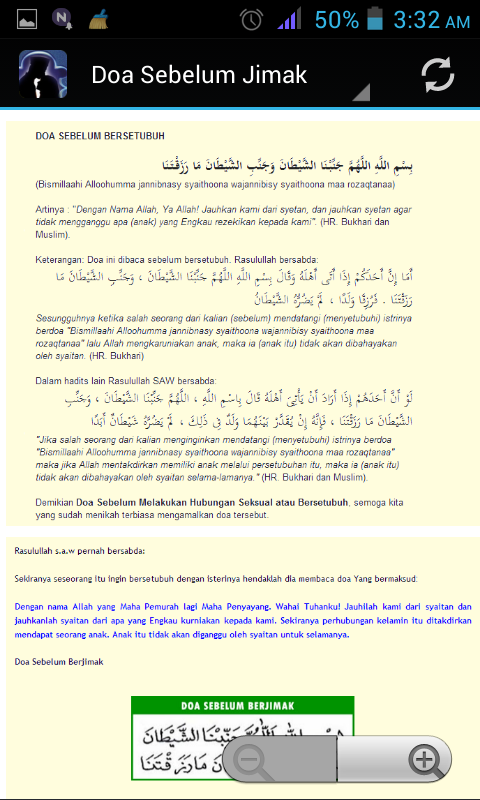 50% 3:32 AM
Doa Sebelum Jimak
DOA SEBELUM BERSETUBUH
بِسْمِ اللَّهِ اللَّهُمَّ جَنِّبْنَا الشَّيْطَانَ وَجَنِّبِ الشَّيْطَانَ مَا رَزَقْتَنَا
(Bismillaahi Alloohumma jannibnasy syaithoona wajannibisy syaithoona maa rozaqtanaa)
Artinya : "Dengan Nama Allah, Ya Allah! Jauhkan kami dari syetan, dan jauhkan syetan agar
tidak mengganggu apa (anak) yang Engkau rezekikan kepada kami". (HR. Bukhari dan
Muslim).
Keterangan: Doa ini dibaca sebelum bersetubuh. Rasulullah bersabda:
أَمَا إِنَّ أَحَدَكُمْ إِذَا أَتَى أَهْلَهُ وَقَالَ بِسْمِ اللَّهِ اللَّهُمَّ جَنِّبْنَا الشَّيْطَانَ ، وَجَنِّبِ الشَّيْطَانَ مَا
رَزَقْتَنَا . فَرُزِقَا وَلَدًا ، لَمْ يَضُرُّهُ الشَّيْطَانُ
Sesungguhnya ketika salah seorang dari kalian (sebelum) mendatangi (menyetubuhi) istrinya
berdoa "Bismillaahi Alloohumma jannibnasy syaithoona wajannibisy syaithoona maa
rozaqtanaa" lalu Allah mengkaruniakan anak, maka ia (anak itu) tidak akan dibahayakan
oleh syaitan. (HR. Bukhari)
Dalam hadits lain Rasulullah SAW bersabda:
لَوْ أَنَّ أَحَدَهُمْ إِذَا أَرَادَ أَنْ يَأْتِىَ أَهْلَهُ قَالَ بِاسْمِ اللَّهِ ، اللَّهُمَّ جَنِّبْنَا الشَّيْطَانَ ، وَجَنِّبِ
الشَّيْطَانَ مَا رَزَقْتَنَا ، فَإِنَّهُ إِنْ يُقَدَّرْ بَيْنَهُمَا وَلَدٌ فِى ذَلِكَ ، لَمْ يَضُرُّهُ شَيْطَانٌ أَبَدًا
"Jika salah seorang dari kalian menginginkan mendatangi (menyetubuhi) istrinya berdoa
"Bismillaahi Alloohumma jannibnasy syaithoona wajannibisy syaithoona maa rozaqtanaa"
maka jika Allah mentakdirkan memiliki anak melalui persetubuhan itu, maka ia (anak itu)
tidak akan dibahayakan oleh syaitan selama-lamanya." (HR. Bukhari dan Muslim).
Demikian Doa Sebelum Melakukan Hubungan Seksual atau Bersetubuh, semoga kita
yang sudah menikah terbiasa mengamalkan doa tersebut.
Rasulullah s.a.w pernah bersabda:
Sekiranya seseorang itu ingin bersetubuh dengan isterinya hendaklah dia membaca doa Yang bermaksud:
Dengan nama Allah yang Maha Pemurah lagi Maha Penyayang. Wahai Tuhanku! Jauhilah kami dari syaitan dan
jauhkanlah syaitan dari apa yang Engkau kurniakan kepada kami. Sekiranya perhubungan kelamin itu ditakdirkan
mendapat seorang anak. Anak itu tidak akan diganggu oleh syaitan untuk selamanya.
Doa Sebelum Berjimak
DOA SEBELUM BERJIMAK
اللَّهُمَّ جَنِّبْنَا الشَّيْطَانَ
مَا رَزَقْتَنَا